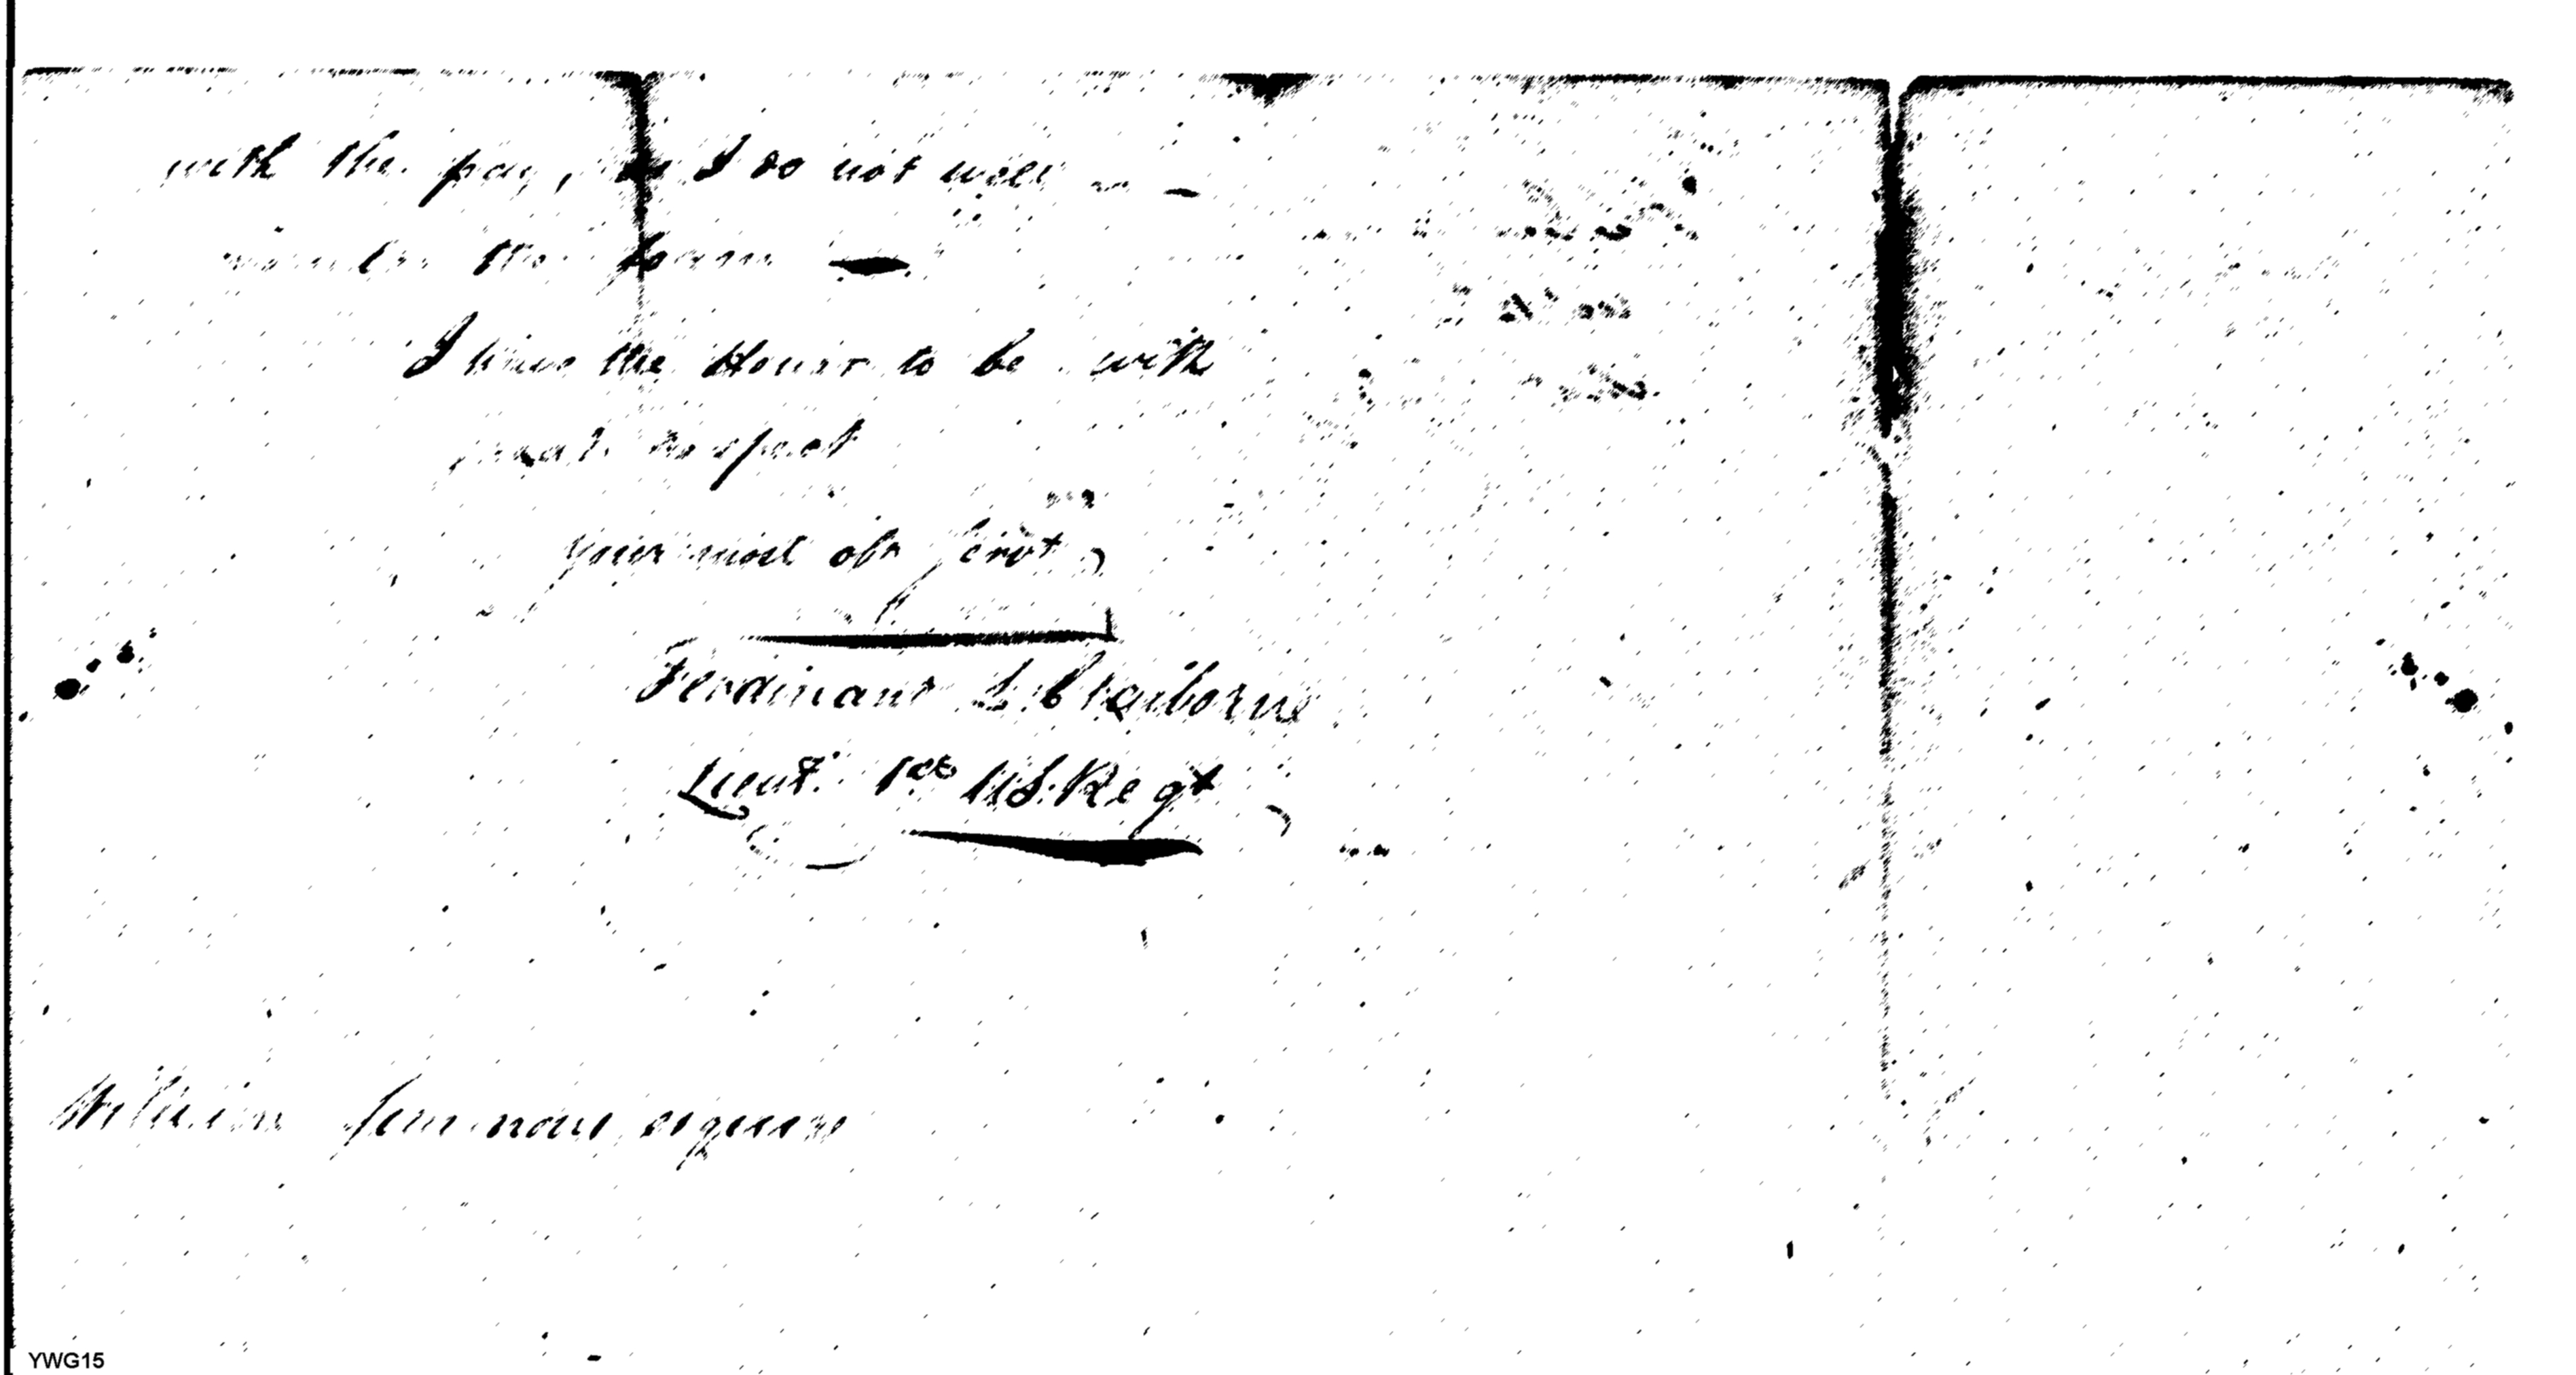 with the pay, as I do not well re-
member the form —
I have the Honor to be with
great respect
your most obt servt
Ferdinand L Claiborne
Lieut. 1st US. Regt
William Simmons esquire
YWG15